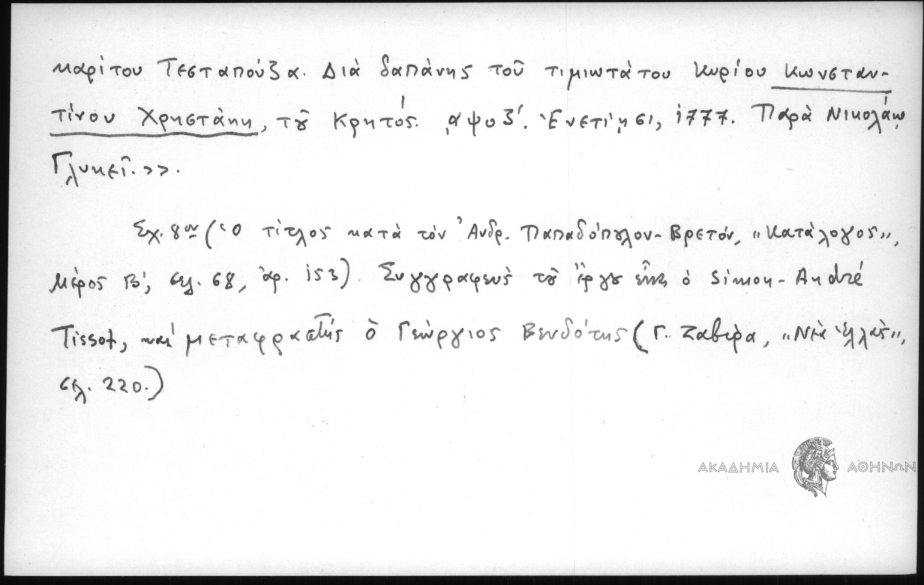 μαρίτου Τεσταπούζα. Διὰ δαπάνης τοῦ τιμιωτάτου Κυρίου Κωνσταν-
τίνου Χρηστάκη, τοῦ Κρητός. ͵αψοζʹ. Ἐνετίῃσι, 1777. Παρὰ Νικολάῳ
Γλυκεῖ.>>.
Σχ. 8ον (Ὁ τίτλος κατὰ τὸν Ἀνδρ. Παπαδόπουλον-Βρετόν, "Κατάλογος",
Μέρος Βʹ, σελ. 68, ἀρ. 153). Συγγραφεὺς τοῦ ἔργου εἶναι ὁ Simon-André
Tissot, καὶ μεταφραστὴς ὁ Γεώργιος Βενδότης (Γ. Ζαβίρα, "Νέα Ἑλλάς",
σελ. 220.)
ΑΚΑΔΗΜΙΑ ΑΘΗΝΩΝ